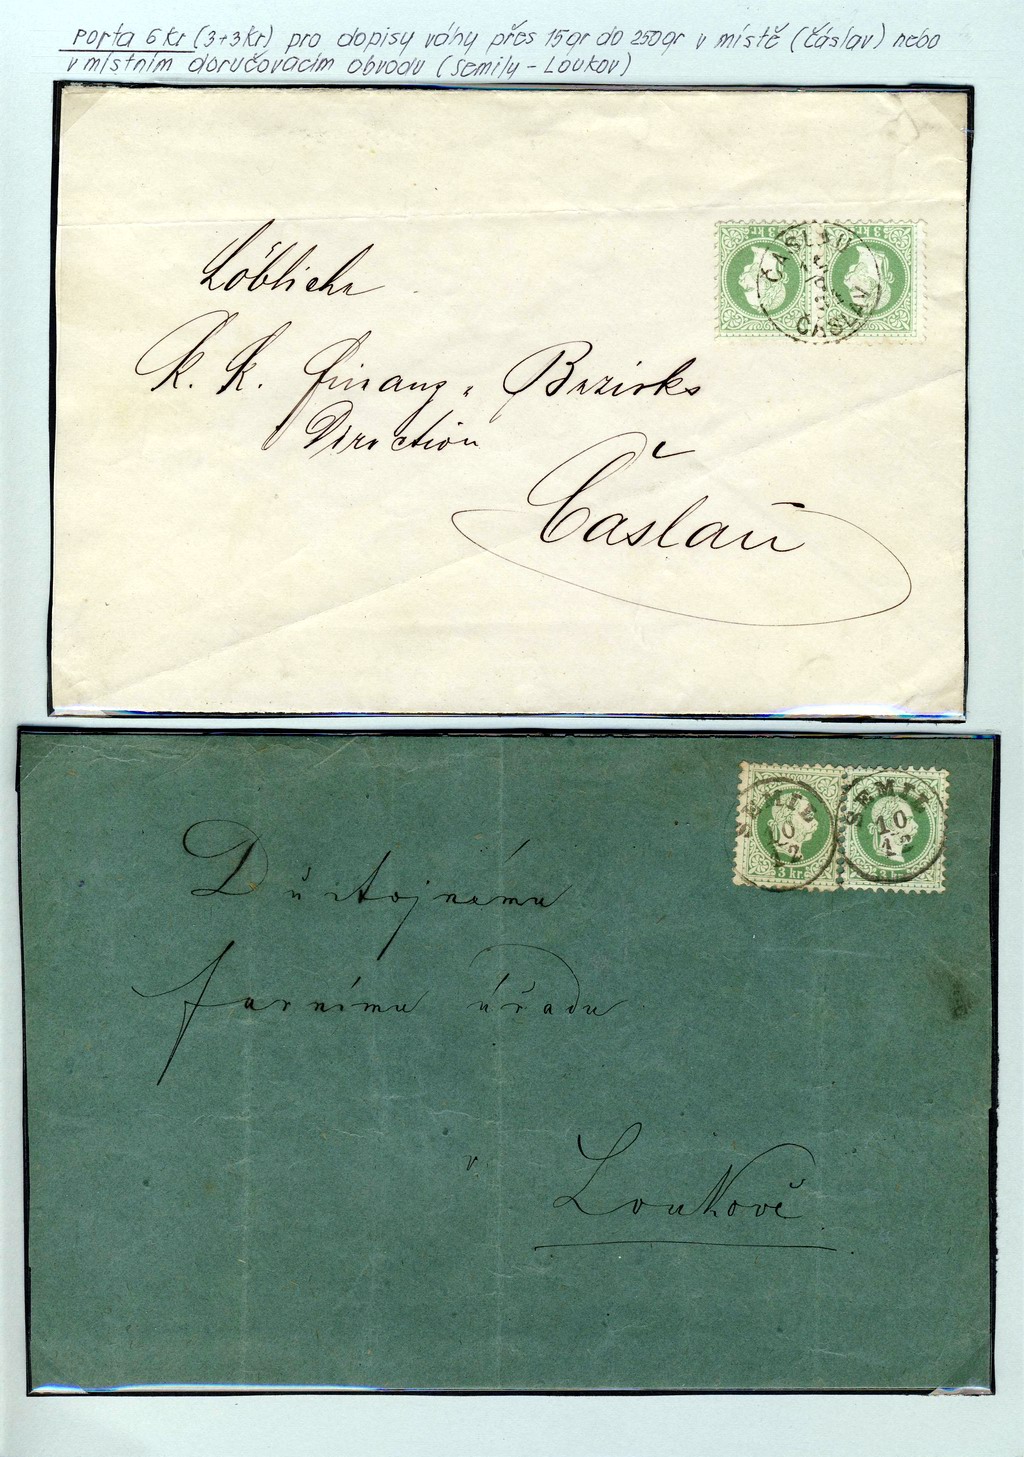 porta 6 kr (3+3kr) pro dopisy váhy přes 15gr do 250gr v místě (Čáslav) nebo
v místním doručovacím obvodu (Semily - Loukov)
3 kr. 3 kr.
ČASLAU
ČÁSLAV
Löbliche
K. K. Finanz- Bezirks
Direction
Čáslau
SEMIL SEMIL
10 10
12 12
3 kr. 3 kr.
Důstojnému
farnímu úřadu
v
Loukově